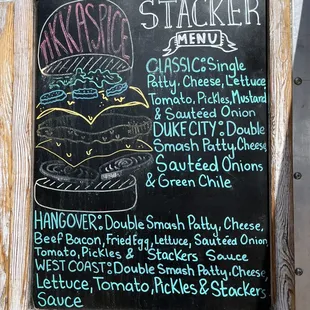 AKKASPICE
STACKER
MENU
CLASSIC: Single
Patty, Cheese, Lettuce
Tomato, Pickles, Mustard
& Sautéed Onion
DUKE CITY: Double
Smash Patty, Cheese
Sautéed Onions
& Green Chile
HANGOVER: Double Smash Patty, Cheese,
Beef Bacon, Fried Egg, Lettuce, Sautéed Onion
Tomato, Pickles & Stackers Sauce
WEST COAST: Double Smash Patty, Cheese,
Lettuce, Tomato, Pickles & Stackers
Sauce